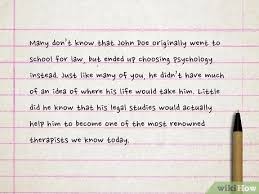 Many don't know that John Doe originally went to
school for law, but ended up choosing psychology
instead. Just like many of you, he didn't have much
of an idea of where his life would take him. Little
did he know that his legal studies would actually
help him to become one of the most renowned
therapists we know today.
wikiHow